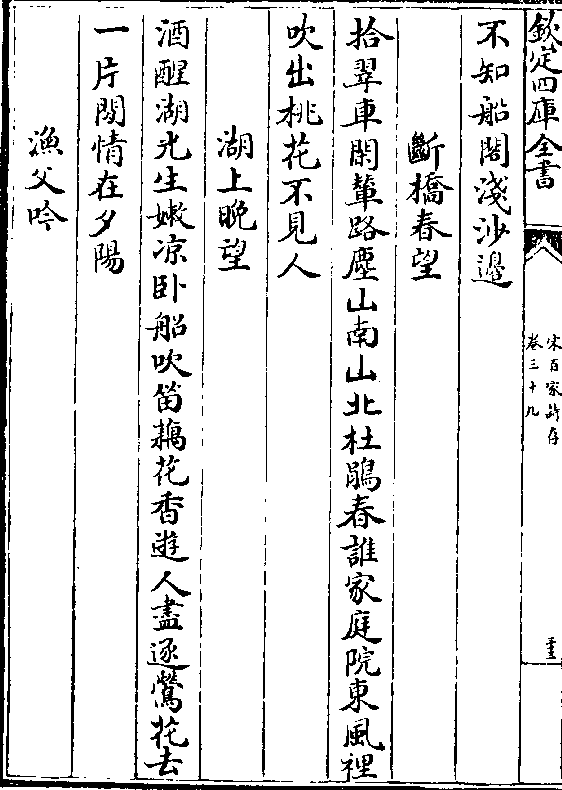 欽定四庫全書
宋百家詩存
卷三十九
不知船閣淺沙邊
斷橋春望
拾翠車閑輦路塵山南山北杜鵑春誰家庭院東風裡
吹出桃花不見人
湖上晚望
酒醒湖光生嫩凉卧船吹笛藕花香遊人盡逐鶯花去
一片閒情在夕陽
漁父吟